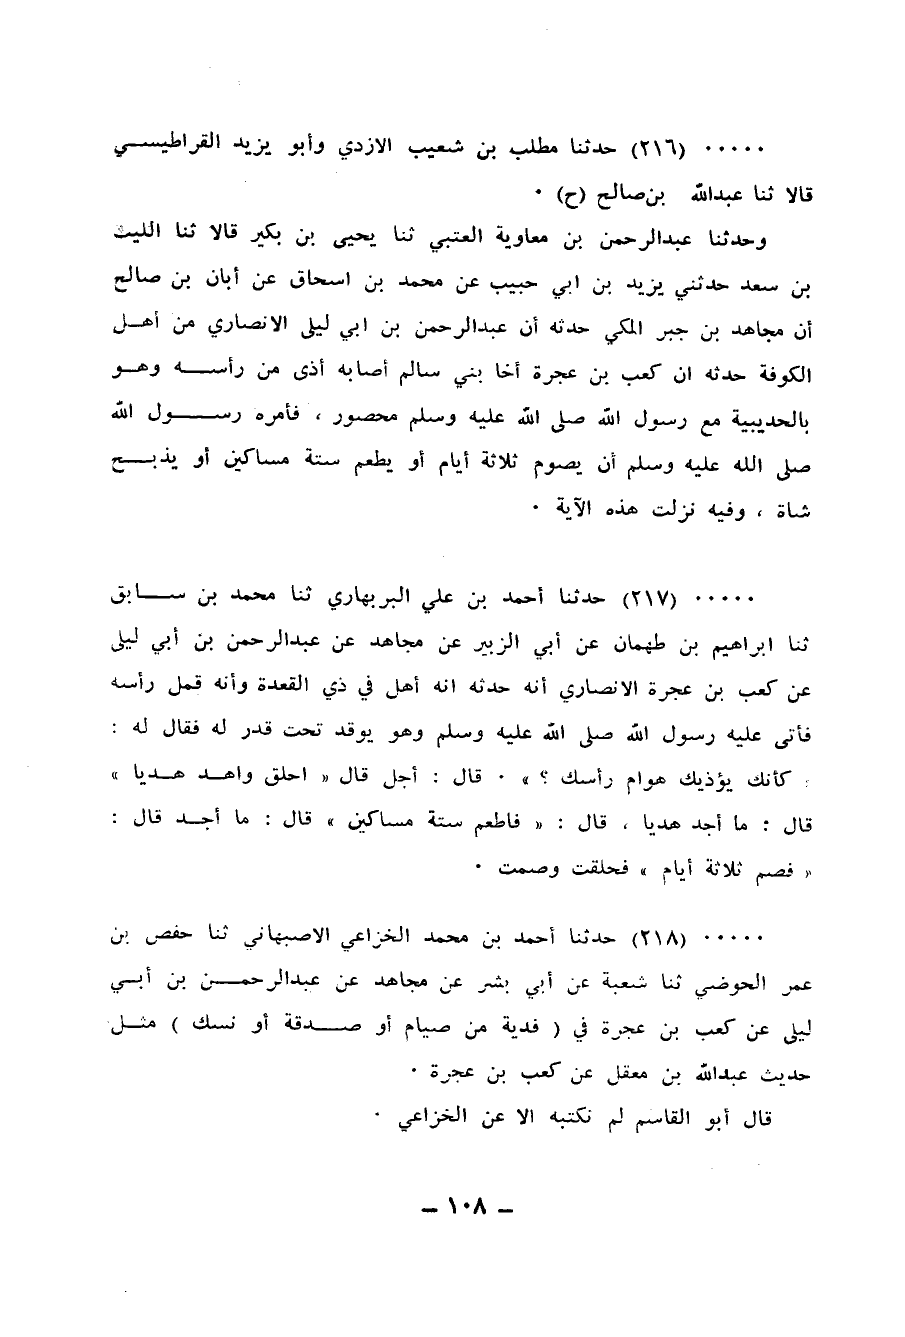 ٠٠٠٠٠ (٢١٦) حدثنا مطلب بن شعيب الازدي وأبو يزيد القراطيسي
قالا ثنا عبدالله بن صالح (ح) ٠
وحدثنا عبدالرحمن بن معاوية العتبي ثنا يحيى بن بكير قالا ثنا الليث
بن سعد حدثني يزيد بن ابي حبيب عن محمد بن اسحاق عن أبان بن صالح
أن مجاهد بن جبر المكي حدثه أن عبدالرحمن بن ابي ليلى الانصاري من أهل
الكوفة حدثه ان كعب بن عجرة أخا بني سالم أصابه أذى من رأسه وهو
بالحديبية مع رسول الله صلى الله عليه وسلم محصور ، فأمره رسول الله
صلى الله عليه وسلم أن يصوم ثلاثة أيام أو يطعم ستة مساكين أو يذبح
شاة ، وفيه نزلت هذه الآية ٠
٠٠٠٠٠ (٢١٧) حدثنا أحمد بن علي البربهاري ثنا محمد بن سابق
ثنا ابراهيم بن طهمان عن أبي الزبير عن مجاهد عن عبدالرحمن بن أبي ليلى
عن كعب بن عجرة الانصاري أنه حدثه انه أهل في ذي القعدة وأنه قمل رأسه
فأتى عليه رسول الله صلى الله عليه وسلم وهو يوقد تحت قدر له فقال له :
« كأنك يؤذيك هوام رأسك ؟ » ٠ قال : أجل قال « احلق واهد هديا »
قال : ما أجد هديا ، قال : « فاطعم ستة مساكين » قال : ما أجد قال :
« فصم ثلاثة أيام » فحلقت وصمت ٠
٠٠٠٠٠ (٢١٨) حدثنا أحمد بن محمد الخزاعي الاصبهاني ثنا حفص بن
عمر الحوضي ثنا شعبة عن أبي بشر عن مجاهد عن عبدالرحمن بن أبي
ليلى عن كعب بن عجرة في ( فدية من صيام أو صدقة أو نسك ) مثل
حديث عبدالله بن معقل عن كعب بن عجرة ٠
قال أبو القاسم لم نكتبه الا عن الخزاعي ٠
– ١٠٨ –